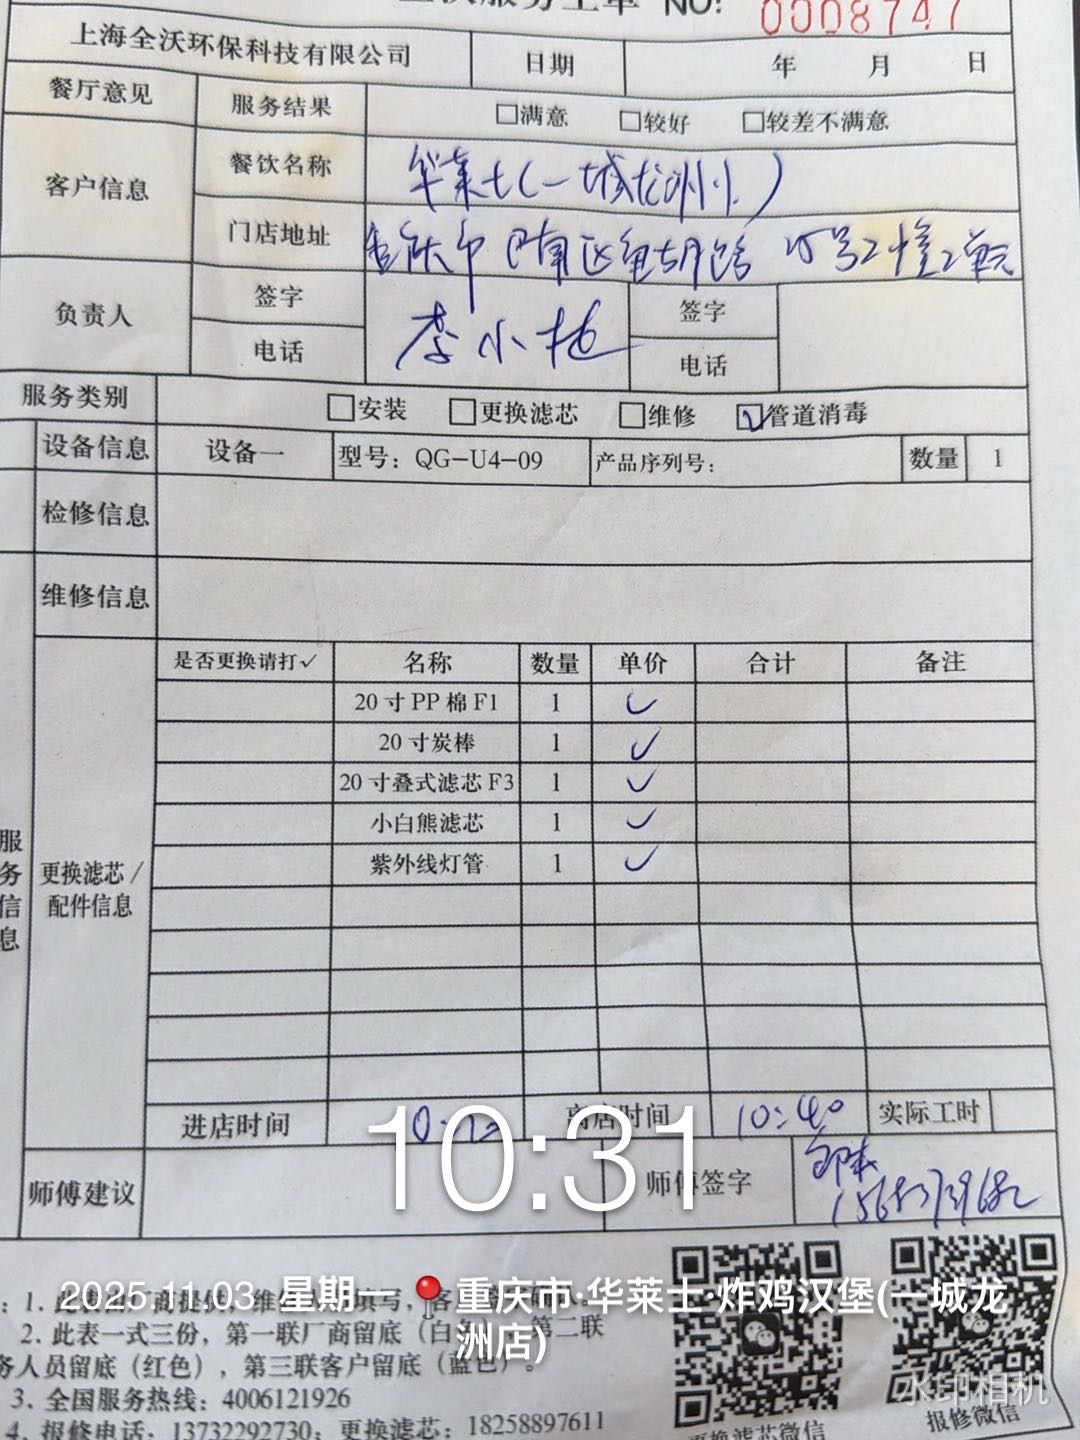 全沃服务工单 NO: 0008747
上海全沃环保科技有限公司 日期 年 月 日
餐厅意见 服务结果 □满意 □较好 □较差不满意
客户信息 餐饮名称 华莱士(一城龙洲)
门店地址 重庆市巴南区鱼胡路 号2幢2单元
负责人 签字 李小 签字
电话 电话
服务类别 □安装 □更换滤芯 □维修 ☑管道消毒
设备信息 设备一 型号: QG-U4-09 产品序列号: 数量 1
检修信息
维修信息
服务信息
更换滤芯/
配件信息
是否更换请打✓ 名称 数量 单价 合计 备注
20寸PP棉F1 1 ✓
20寸炭棒 1 ✓
20寸叠式滤芯F3 1 ✓
小白熊滤芯 1 ✓
紫外线灯管 1 ✓
进店时间 离店时间 10:40 实际工时
10:31
师傅建议 师傅签字
2025.11.03 星期一 重庆市·华莱士·炸鸡汉堡(一城龙
洲店)
: 1. 此 商提供, 维 填写, 客
2. 此表一式三份, 第一联厂商留底 (白 第二联
务人员留底 (红色), 第三联客户留底 (蓝色)。
3. 全国服务热线: 4006121926
4. 报修电话: 13732292730; 更换滤芯: 18258897611
更换滤芯微信 报修微信
水印相机